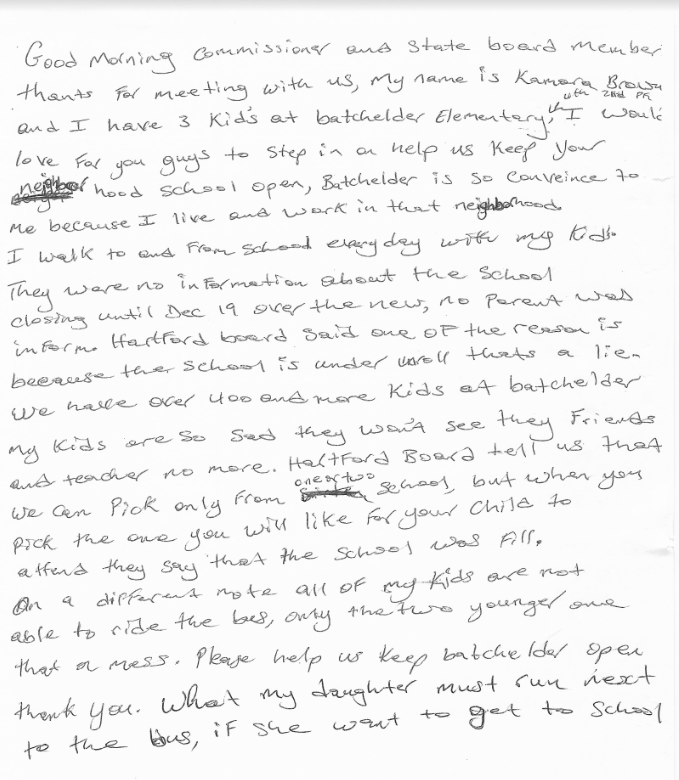 Good Morning Commissioner and State board member
thanks for meeting with us, My name is Kamara Brown
and I have 3 Kid's at batchelder Elementary, 4th 2nd PK I would
love for you guys to Step in on help us Keep your
neighbor hood School open, Batchelder is so Conveince to
me because I live and work in that neighborhood.
I walk to and from School everyday with my Kids.
They were no information about the School
closing until Dec 19 over the new, no Parent was
inform. Hartford board said one of the reason is
because ther School is under unroll thats a lie.
We have over 400 and more Kids at batchelder
My Kids are so Sad they won't see they Friends
and teacher no more. Hartford Board tell us that
we can Pick only from one or two School, but when you
Pick the one you will like for your child to
attend they say that the School was Fill.
On a different note all of my Kids are not
able to ride the bus, only the two younger one
that a mess. Please help us Keep batchelder open
thank you. What my daughter must run next
to the bus, if she want to get to School